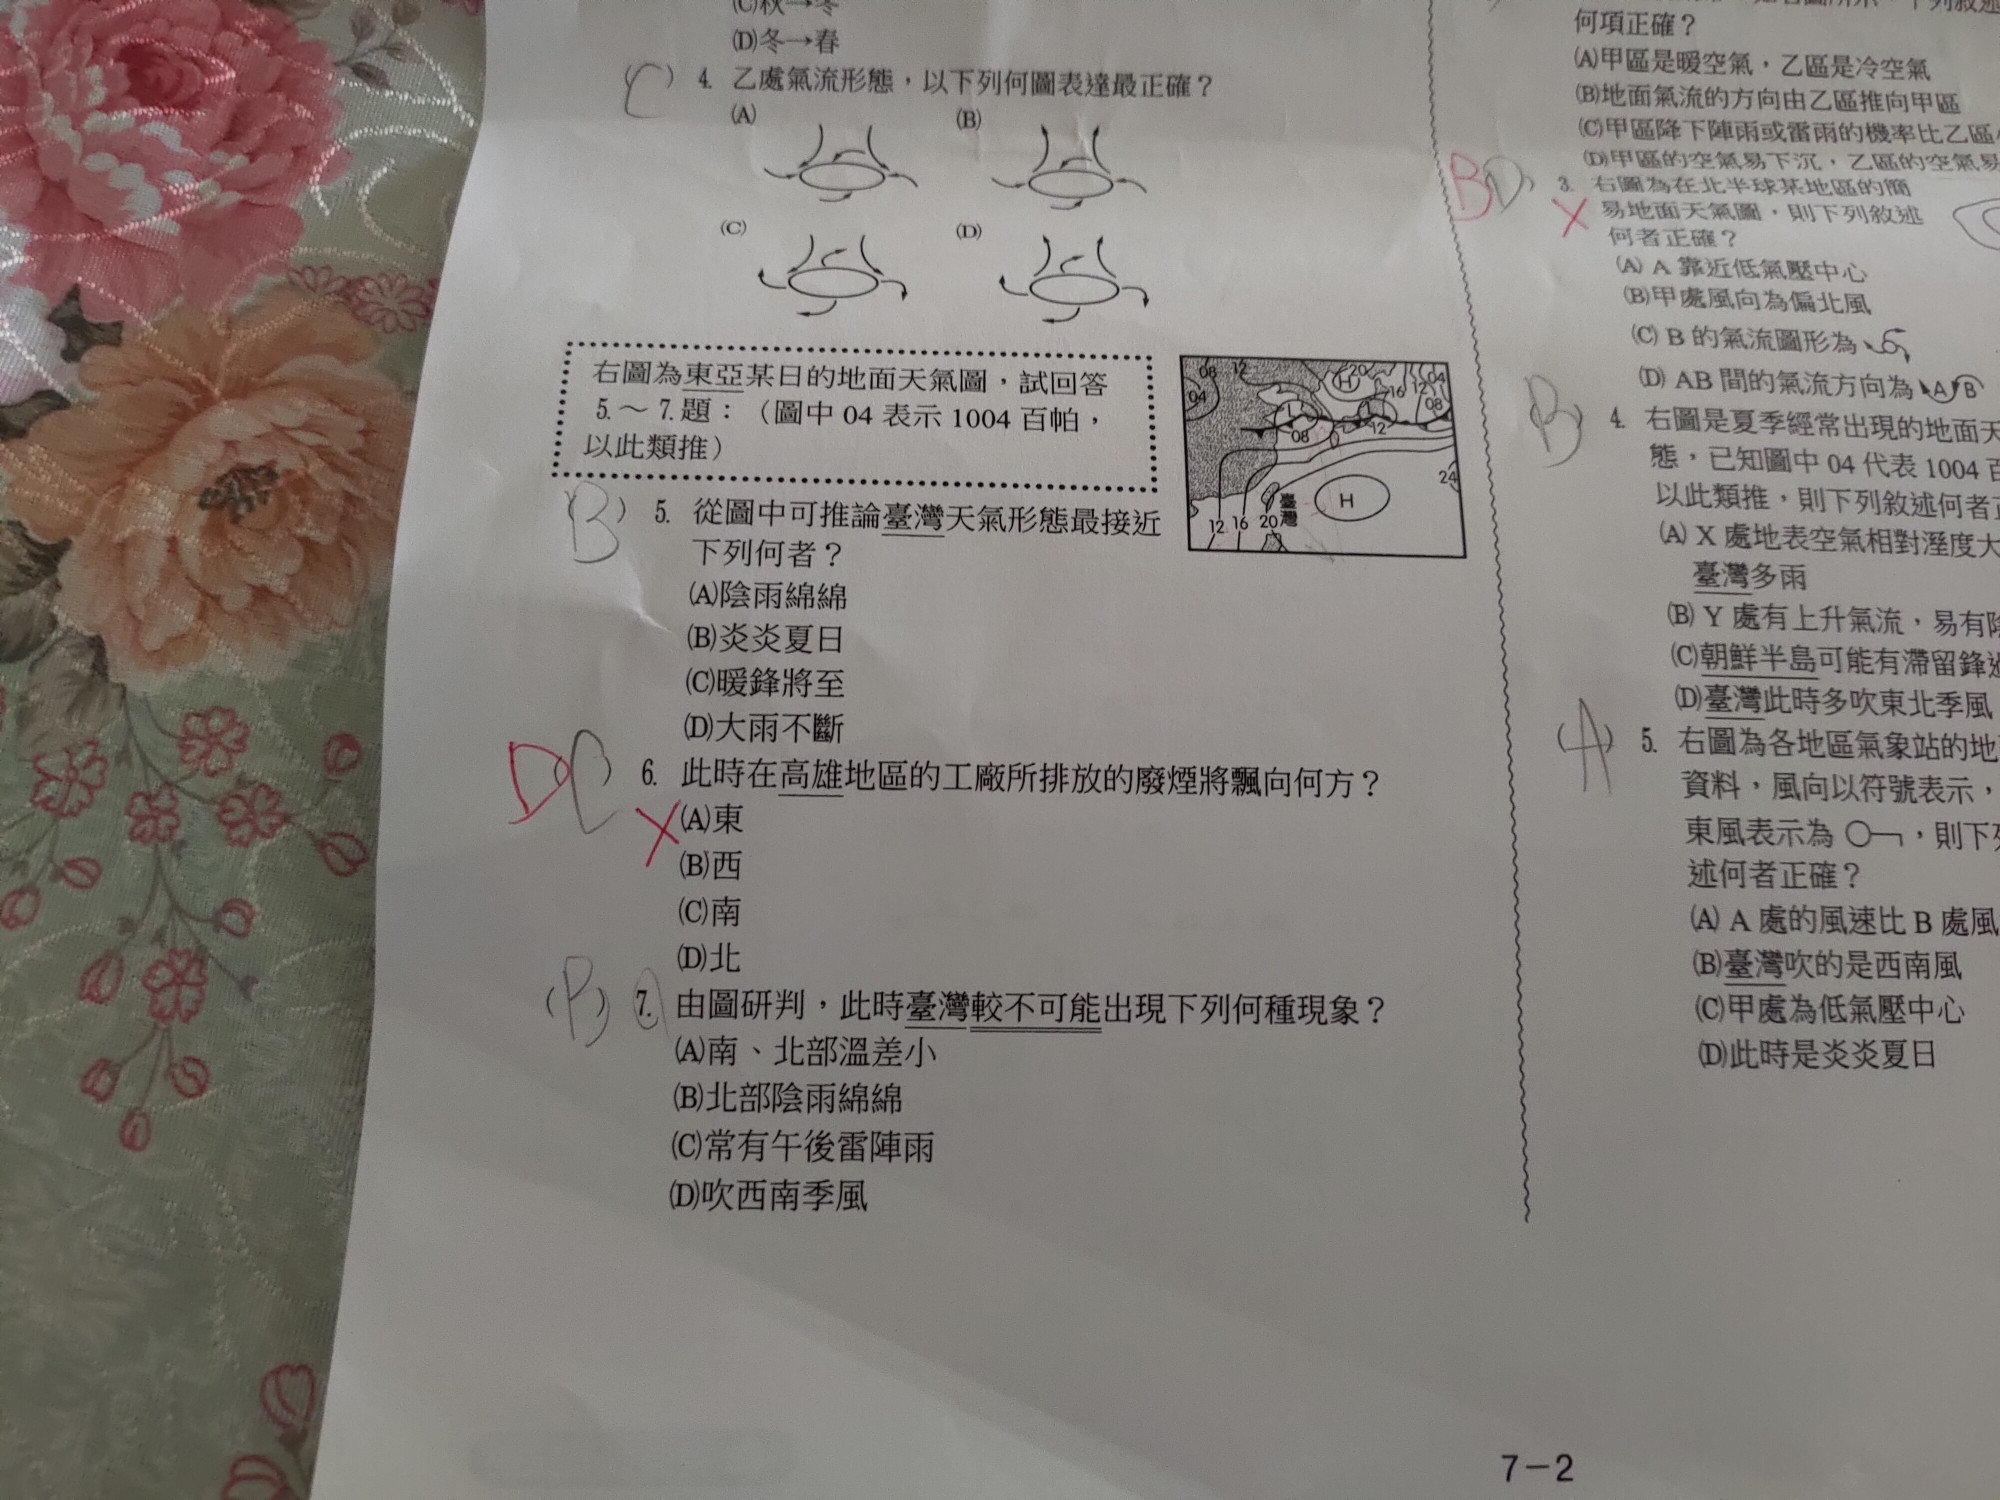 (C)秋→冬
(D)冬→春
(C) 4. 乙處氣流形態，以下列何圖表達最正確？
(A) (B)
(C) (D)
右圖為東亞某日的地面天氣圖，試回答
5.～7.題：（圖中 04 表示 1004 百帕，
以此類推）
08 12 H 20 16 12 04
04 L L 08
08 12
24
臺灣 H
12 16 20
(B) 5. 從圖中可推論臺灣天氣形態最接近
下列何者？
(A)陰雨綿綿
(B)炎炎夏日
(C)暖鋒將至
(D)大雨不斷
D (C) 6. 此時在高雄地區的工廠所排放的廢煙將飄向何方？
(A)東
(B)西
(C)南
(D)北
(B) 7. 由圖研判，此時臺灣較不可能出現下列何種現象？
(A)南、北部溫差小
(B)北部陰雨綿綿
(C)常有午後雷陣雨
(D)吹西南季風
何項正確？
(A)甲區是暖空氣，乙區是冷空氣
(B)地面氣流的方向由乙區推向甲區
(C)甲區降下陣雨或雷雨的機率比乙區
(D)甲區的空氣易下沉，乙區的空氣易
B (D) 3. 右圖為在北半球某地區的簡
易地面天氣圖，則下列敘述
何者正確？
(A) A 靠近低氣壓中心
(B)甲處風向為偏北風
(C) B 的氣流圖形為
(D) AB 間的氣流方向為 A B
(B) 4. 右圖是夏季經常出現的地面天
態，已知圖中 04 代表 1004 百
以此類推，則下列敘述何者正
(A) X 處地表空氣相對溼度大
臺灣多雨
(B) Y 處有上升氣流，易有陰
(C)朝鮮半島可能有滯留鋒過
(D)臺灣此時多吹東北季風
(A) 5. 右圖為各地區氣象站的地
資料，風向以符號表示，
東風表示為，則下列
述何者正確？
(A) A 處的風速比 B 處風
(B)臺灣吹的是西南風
(C)甲處為低氣壓中心
(D)此時是炎炎夏日
7－2